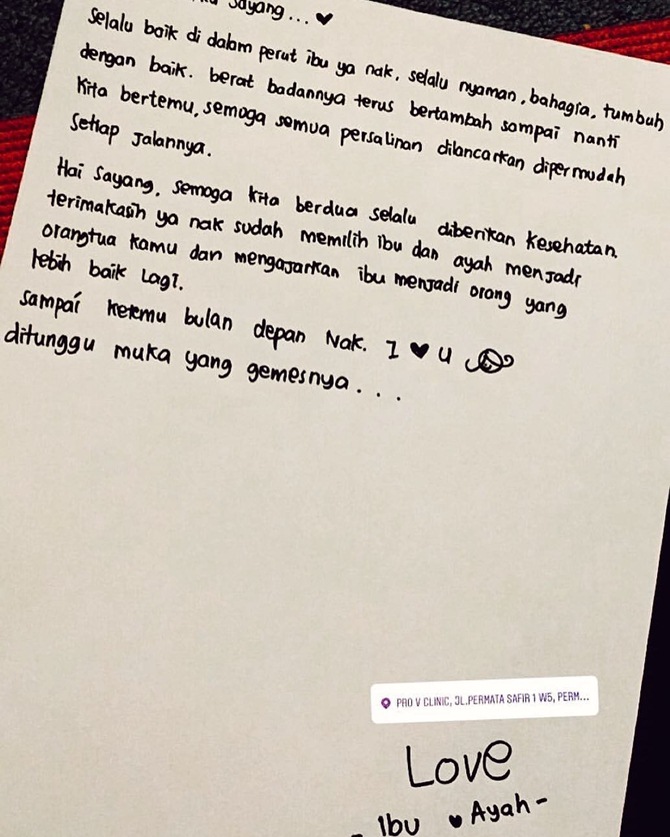 Sayang... ♥
Selalu baik di dalam perut ibu ya nak, selalu nyaman, bahagia, tumbuh
dengan baik. berat badannya terus bertambah sampai nanti
kita bertemu, semoga semua persalinan dilancarkan dipermudah
setiap jalannya.
Hai Sayang, semoga kita berdua selalu diberikan kesehatan.
terimakasih ya nak sudah memilih ibu dan ayah menjadi
orangtua kamu dan mengajarkan ibu menjadi orang yang
lebih baik lagi.
Sampai ketemu bulan depan Nak. I ♥ U
ditunggu muka yang gemesnya...
PRO V CLINIC, JL.PERMATA SAFIR 1 W5, PERM...
Love
- Ibu ♥ Ayah -